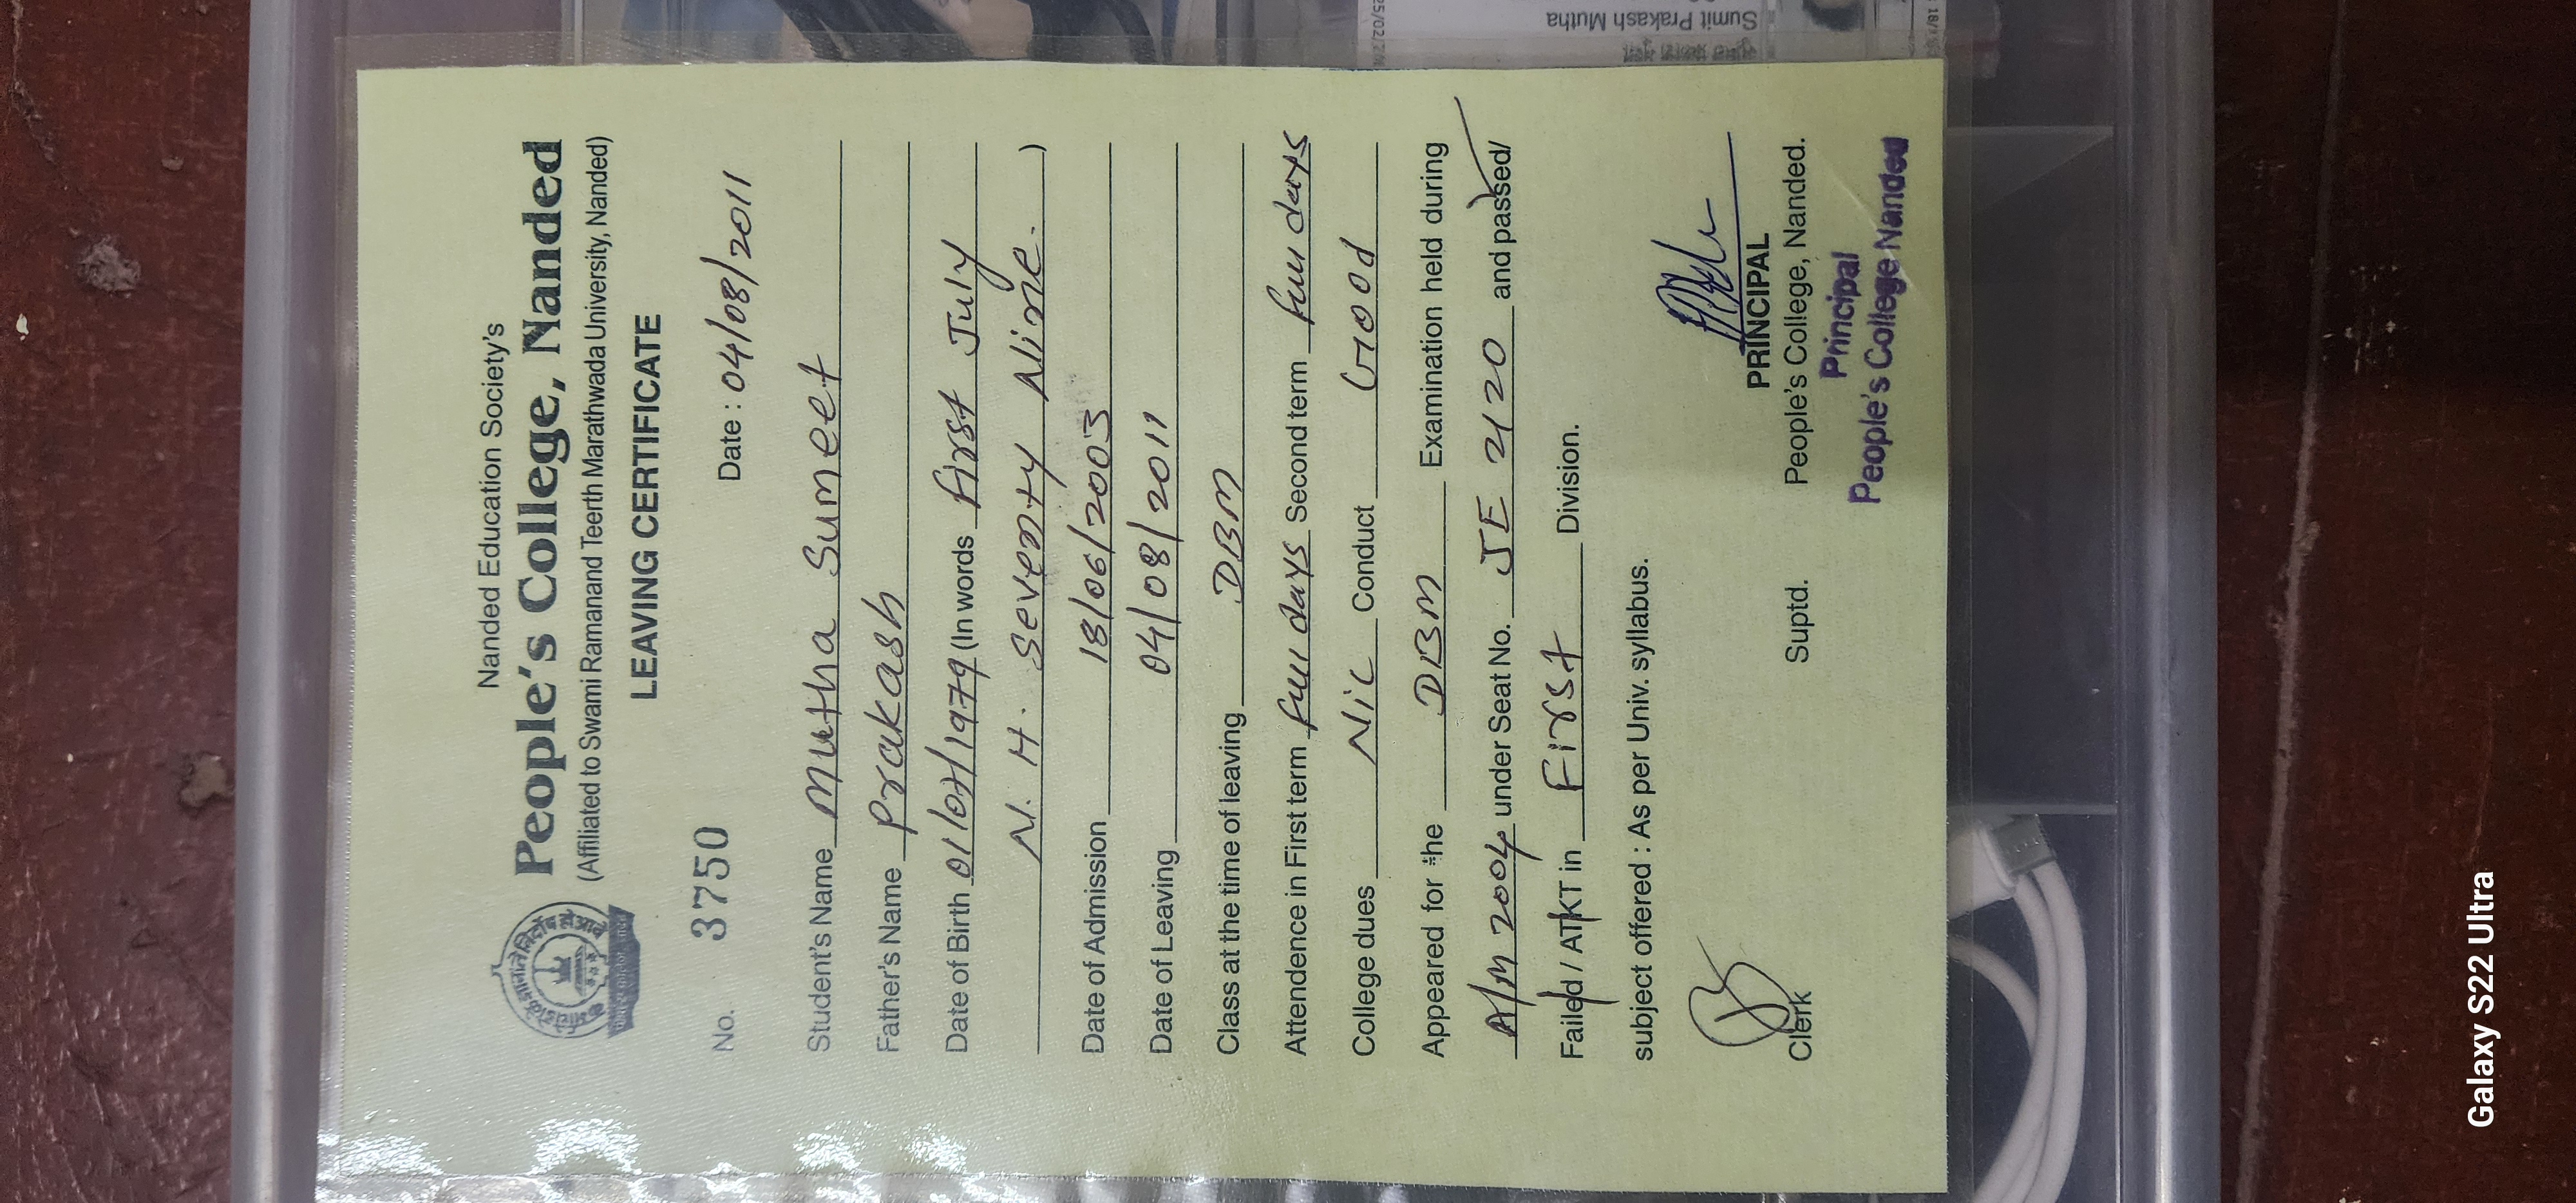 Nanded Education Society's
People's College, Nanded
(Affiliated to Swami Ramanand Teerth Marathwada University, Nanded)
LEAVING CERTIFICATE
No. 3750
Date : 04/08/2011
Student's Name Mutha Sumeet
Father's Name Prakash
Date of Birth 01/07/1979 (In words first July
N. H. Seventy Nine. )
Date of Admission 18/06/2003
Date of Leaving 04/08/2011
Class at the time of leaving DBM
Attendence in First term full days Second term full days
College dues Nil Conduct Good
Appeared for the DBM Examination held during
A/M 2004 under Seat No. JE 2120 and passed/
Failed / ATKT in First Division.
subject offered : As per Univ. syllabus.
Clerk Suptd. PRINCIPAL
People's College, Nanded.
Principal
People's College Nanded
Sumit Prakash Mutha
Galaxy S22 Ultra